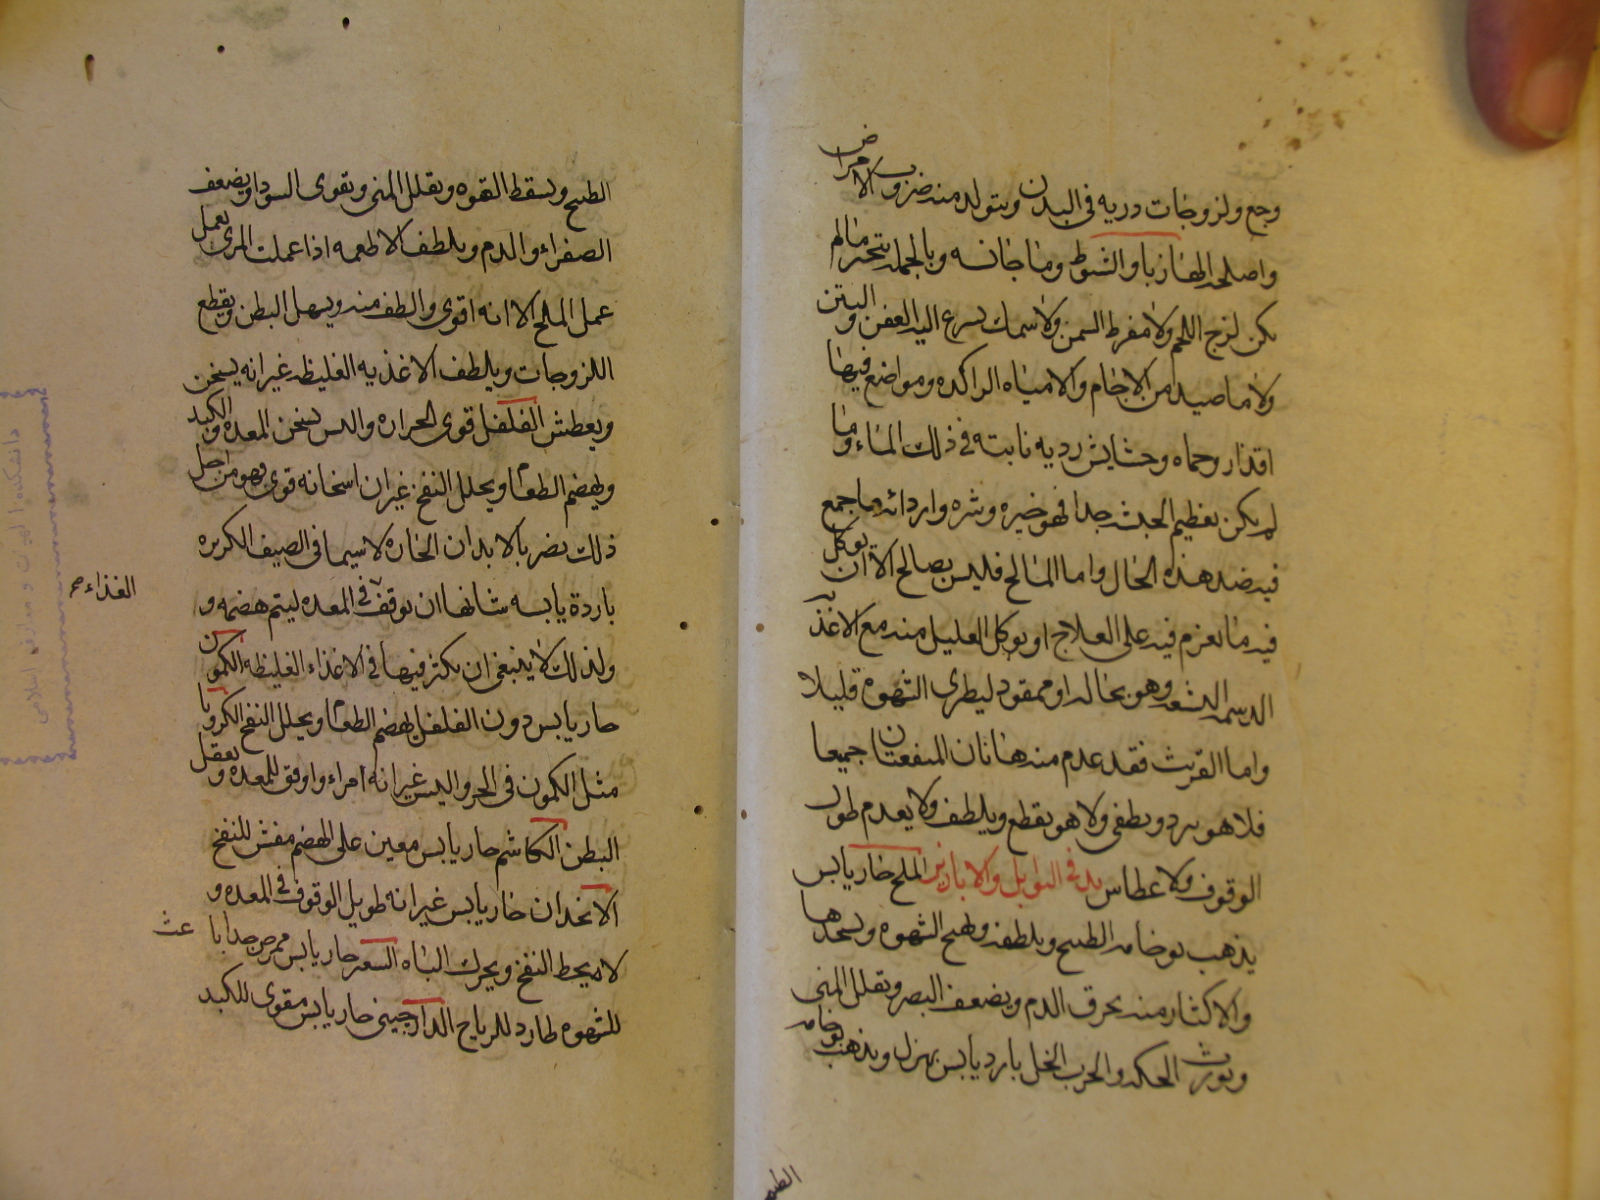 وجع ولزوجات رديه فى البدن ويتولد منه ضروب الامراض
واصلحه الهازبا والشبوط وما جانسه وبالجمله يتخير ما لم
يكن لزج اللحم ولا مفرط السمن ولا سمك يسرع اليه العفن و النتن
ولا ما صيد من الاجام والا مياه الراكده ومواضع فيها
اقذار وحماه وحشايش رديه نابته فى ذلك الماء وما
لم يكن بعظيم الجثه جدا فهو خيره وشره واردائه ما جمع
فيه ضد هذه الحال واما المالح فليس بصالح الا ان يوكل
فيه ما يعزم فيه على العلاج او يوكل القليل منه مع الاغذيه
الدسمه البشعه وهو بحاله او ممقود ليطرى الشهوه قليلا
واما القريث فقد عدم منه هاتان المنفعتان جميعا
فلا هو يبرد ويطفى ولا هو يقطع ويلطف ولا يعدم طول
الوقوف ولا عطاس يد فى التوابل والابازير الملح حار يابس
يذهب بوخامه الطبيخ ويلطفه ويهيج الشهوه ويشحذها
والاكثار منه يحرق الدم ويضعف البصر ويقلل المنى
ويورث الحكه والجرب الخل بارد يابس يهزل ويذهب بوخامه
الطبيخ
الطبيخ ويسقط القوه ويقلل المنى ويقوى السودا ويضعف
الصفراء والدم ويلطف الاطعمه اذا عملت المرى يعمل
عمل الملح الا انه اقوى والطف منه ويسهل البطن ويقطع
اللزوجات ويلطف الاغذيه الغليظه غير انه يسخن
ويعطش الفلفل قوى الحراره واليبس يسخن المعده والكبد
ويهضم الطعام ويحلل النفخ غير ان اسخانه قوى فهو من اجل
ذلك يضر بالابدان الحاره لا سيما فى الصيف الكزبره
باردة يابسه شانها ان توقف فى المعده ليتم هضمه و
الغذاء صح
ولذلك لا ينبغى ان يكثر فيها فى الاغذاء الغليظه الكمون
حار يابس دون الفلفل يهضم الطعام ويحلل النفخ الكرويا
مثل الكمون فى الحر واليبس غير انه امراء واوفق للمعده و يعقل
البطن الكاشم حار يابس معين على الهضم مفش للنفخ
الانجدان حار يابس غير انه طويل الوقوف فى المعده و
لا يحط النفخ ويحرك الباه السعتر حار يابس ممرض جدا با
عث
للشهوه طارد للرياح الدارجينى حار يابس مقوى للكبد